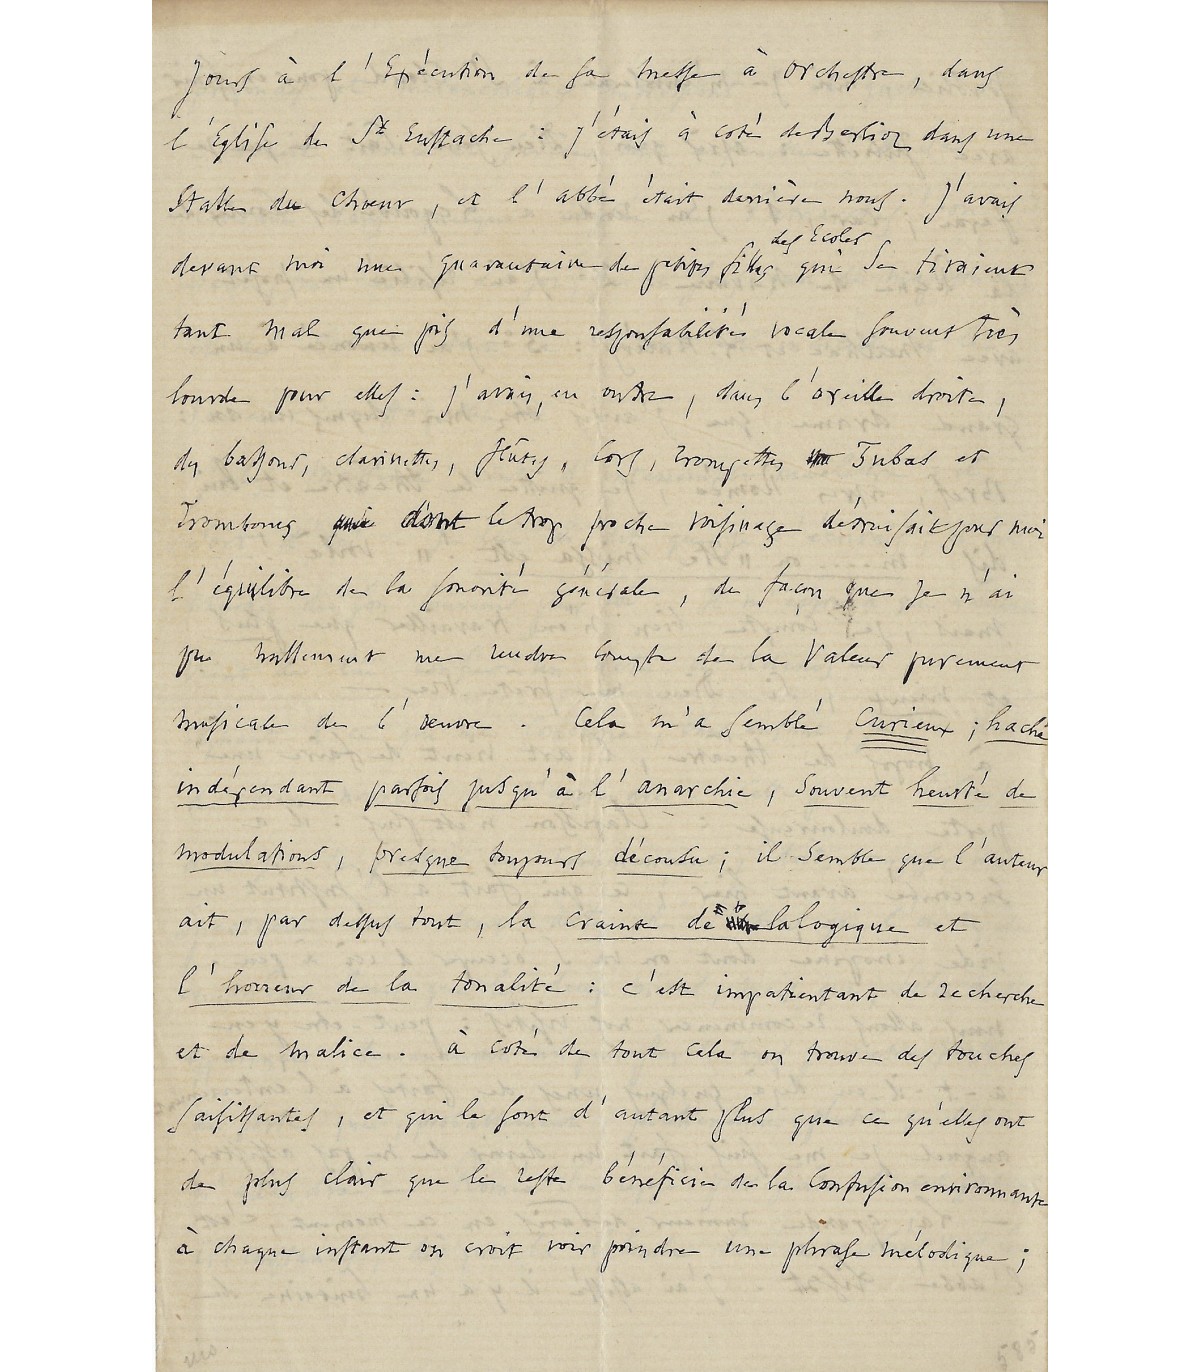 jours à l'Exécution de sa messe à orchestre, dans
l'Eglise de St Eustache : j'étais à coté de Berlioz dans une
Stalle du Chœur, et l'abbé était derrière nous. J'avais
des Ecoles
devant moi une quarantaine de petites filles qui se tiraient
tant mal que pis d'une responsabilité vocale souvent très
lourde pour elles : j'avais, en outre, dans l'oreille droite,
des bassons, clarinettes, flûtes, Cors, trompettes Tubas et
Trombones dont le trop proche voisinage détruisait pour moi
l'équilibre de la sonorité générale, de façon que je n'ai
pu nullement me rendre compte de la Valeur purement
musicale de l'œuvre. Cela m'a semblé Curieux ; haché
indépendant parfois jusqu'à l'anarchie, souvent heurté de
modulations, presque toujours décousu ; il semble que l'auteur
ait, par dessus tout, la crainte de la logique et
l'horreur de la tonalité : c'est impatientant de recherche
et de malice. à coté de tout cela on trouve des touches
saisissantes, et qui le sont d'autant plus que ce qu'elles ont
de plus clair que le reste bénéficie de la Confusion environnante
à chaque instant on croit voir poindre une phrase mélodique ;